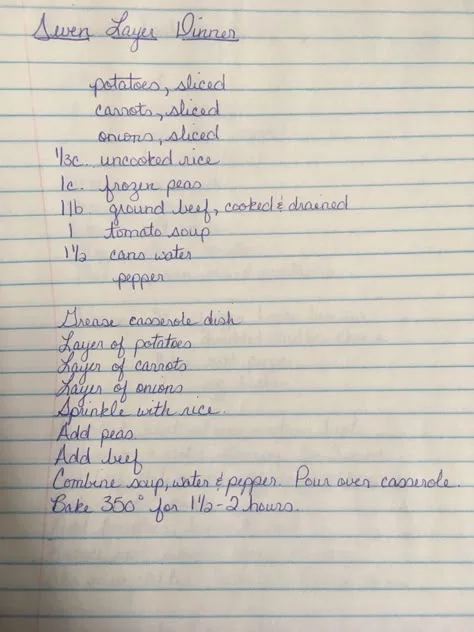 Seven Layer Dinner
potatoes, sliced
carrots, sliced
onions, sliced
1/3c. uncooked rice
1c. frozen peas
1 lb ground beef, cooked & drained
1 tomato soup
1 1/2 cans water
pepper
Grease casserole dish
Layer of potatoes
Layer of carrots
Layer of onions
Sprinkle with rice.
Add peas.
Add beef
Combine soup, water & pepper. Pour over casserole.
Bake 350° for 1 1/2-2 hours.